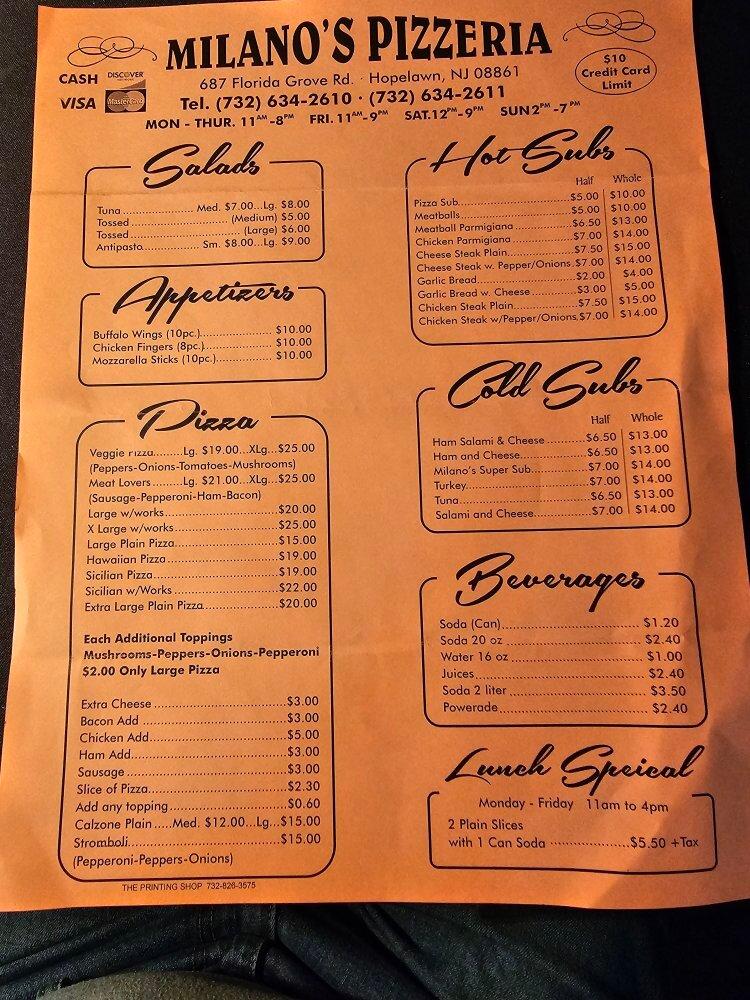 MILANO'S PIZZERIA
CASH DISCOVER
VISA MasterCard
687 Florida Grove Rd. · Hopelawn, NJ 08861
Tel. (732) 634-2610 · (732) 634-2611
MON - THUR. 11AM-8PM FRI. 11AM-9PM SAT.12PM-9PM SUN2PM-7PM
$10
Credit Card
Limit
Salads
Tuna.................... Med. $7.00...Lg. $8.00
Tossed........................ (Medium) $5.00
Tossed............................ (Large) $6.00
Antipasto............... Sm. $8.00...Lg. $9.00
Appetizers
Buffalo Wings (10pc.)................. $10.00
Chicken Fingers (8pc.)................. $10.00
Mozzarella Sticks (10pc.).............. $10.00
Pizza
Veggie Pizza........Lg. $19.00...XLg...$25.00
(Peppers-Onions-Tomatoes-Mushrooms)
Meat Lovers........Lg. $21.00...XLg...$25.00
(Sausage-Pepperoni-Ham-Bacon)
Large w/works............................$20.00
X Large w/works.........................$25.00
Large Plain Pizza.........................$15.00
Hawaiian Pizza...........................$19.00
Sicilian Pizza...............................$19.00
Sicilian w/Works.........................$22.00
Extra Large Plain Pizza..................$20.00
Each Additional Toppings
Mushrooms-Peppers-Onions-Pepperoni
$2.00 Only Large Pizza
Extra Cheese ..............................$3.00
Bacon Add ................................$3.00
Chicken Add..............................$5.00
Ham Add..................................$3.00
Sausage ...................................$3.00
Slice of Pizza..............................$2.30
Add any topping.........................$0.60
Calzone Plain .....Med. $12.00...Lg...$15.00
Stromboli..................................$15.00
(Pepperoni-Peppers-Onions)
THE PRINTING SHOP 732-826-3575
Hot Subs
Half Whole
Pizza Sub...........................$5.00 $10.00
Meatballs...........................$5.00 $10.00
Meatball Parmigiana ..............$6.50 $13.00
Chicken Parmigiana ...............$7.00 $14.00
Cheese Steak Plain.................$7.50 $15.00
Cheese Steak w. Pepper/Onions.$7.00 $14.00
Garlic Bread........................$2.00 $4.00
Garlic Bread w. Cheese ...........$3.00 $5.00
Chicken Steak Plain................$7.50 $15.00
Chicken Steak w/Pepper/Onions.$7.00 $14.00
Cold Subs
Half Whole
Ham Salami & Cheese ..........$6.50 $13.00
Ham and Cheese.................$6.50 $13.00
Milano's Super Sub...............$7.00 $14.00
Turkey..............................$7.00 $14.00
Tuna................................$6.50 $13.00
Salami and Cheese..............$7.00 $14.00
Beverages
Soda (Can)............................... $1.20
Soda 20 oz .............................. $2.40
Water 16 oz ............................. $1.00
Juices..................................... $2.40
Soda 2 liter .............................. $3.50
Powerade................................ $2.40
Lunch Speical
Monday - Friday 11am to 4pm
2 Plain Slices
with 1 Can Soda ....................$5.50 +Tax